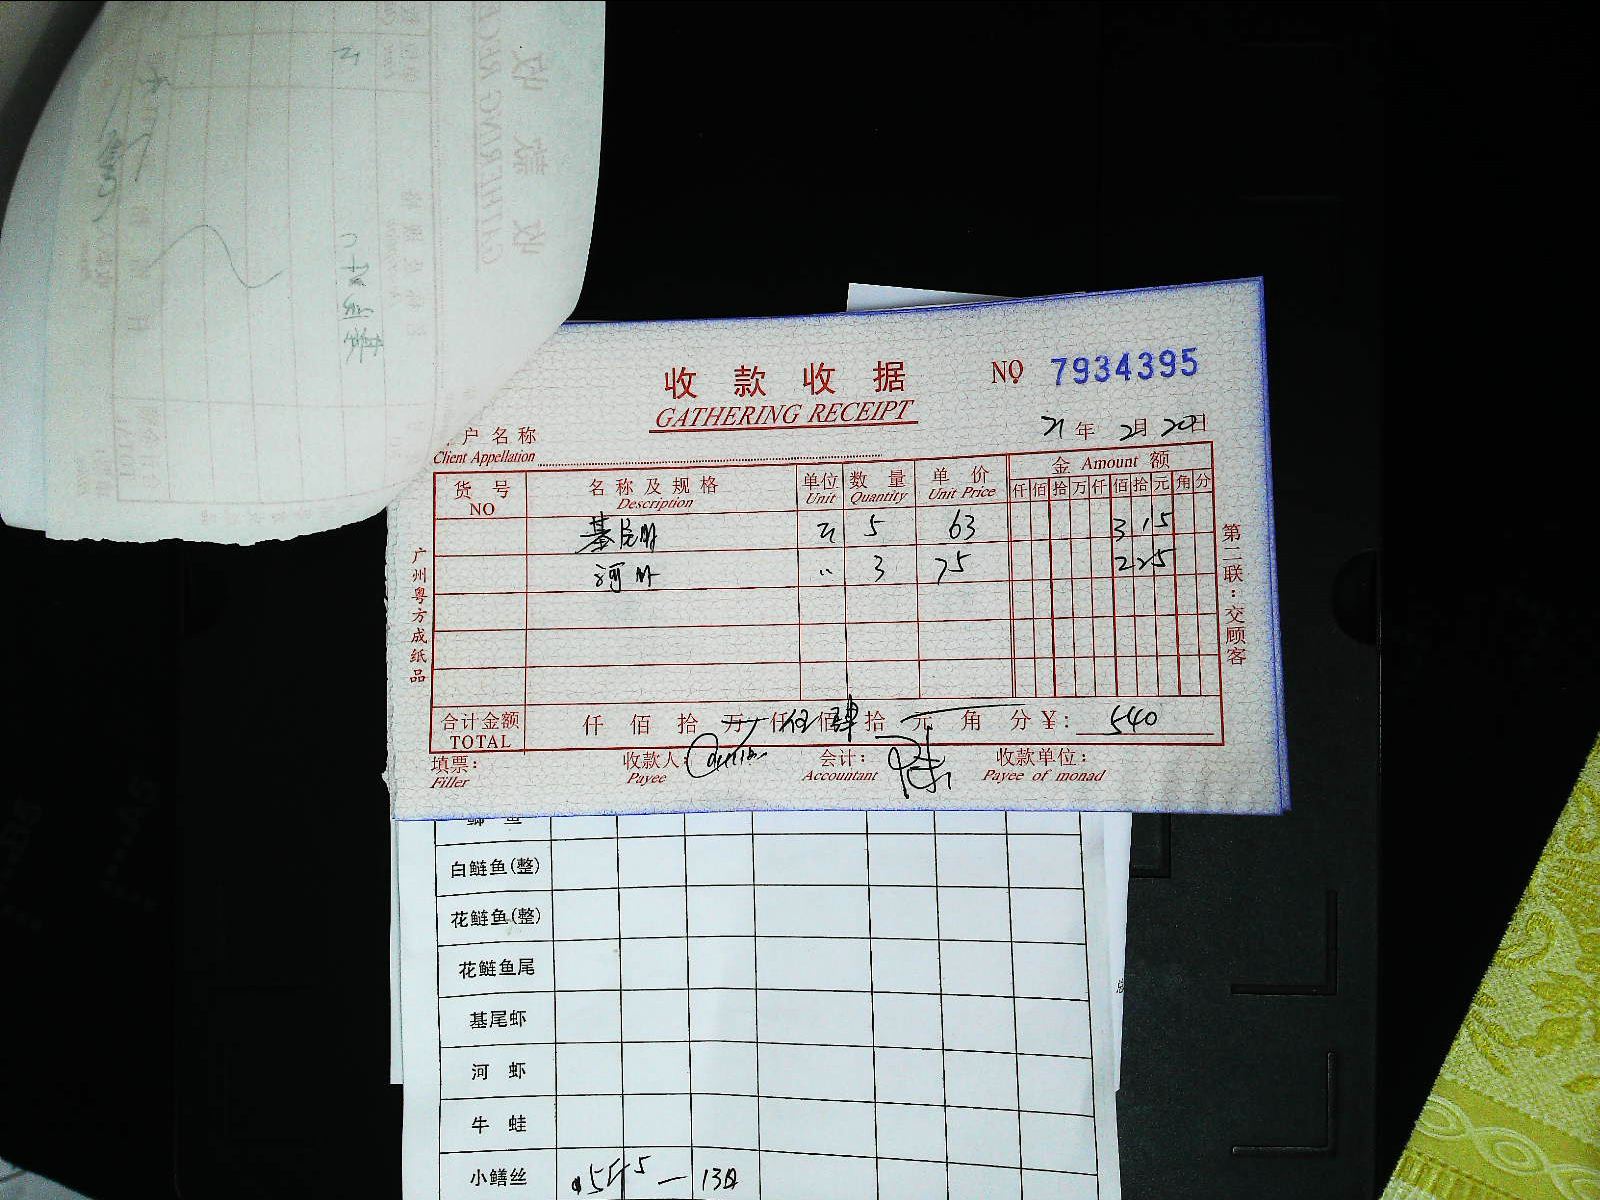 收款收据
GATHERING RECEIPT
NO 7934395
21年2月20日
户名称
Client Appellation
货号 名称及规格 单位 数量 单价 金 Amount 额
NO Description Unit Quantity Unit Price 仟佰拾万仟佰拾元角分
基尾虾 斤 5 63 315
河虾 〃 3 75 225
合计金额 仟佰拾万仟伍佰肆拾元角分¥: 540
TOTAL
填票: 收款人: 会计: 收款单位:
Filler Payee Accountant Payee of monad
广州粤方成纸品
第二联:交顾客
白鲢鱼(整)
花鲢鱼(整)
花鲢鱼尾
基尾虾
河虾
牛蛙
小鳝丝